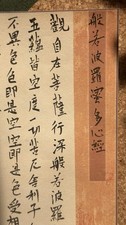 般若波羅蜜多心經
觀自在菩薩行深般若波羅
五蘊皆空度一切苦厄舍利子
不異色色即是空空即是色受想